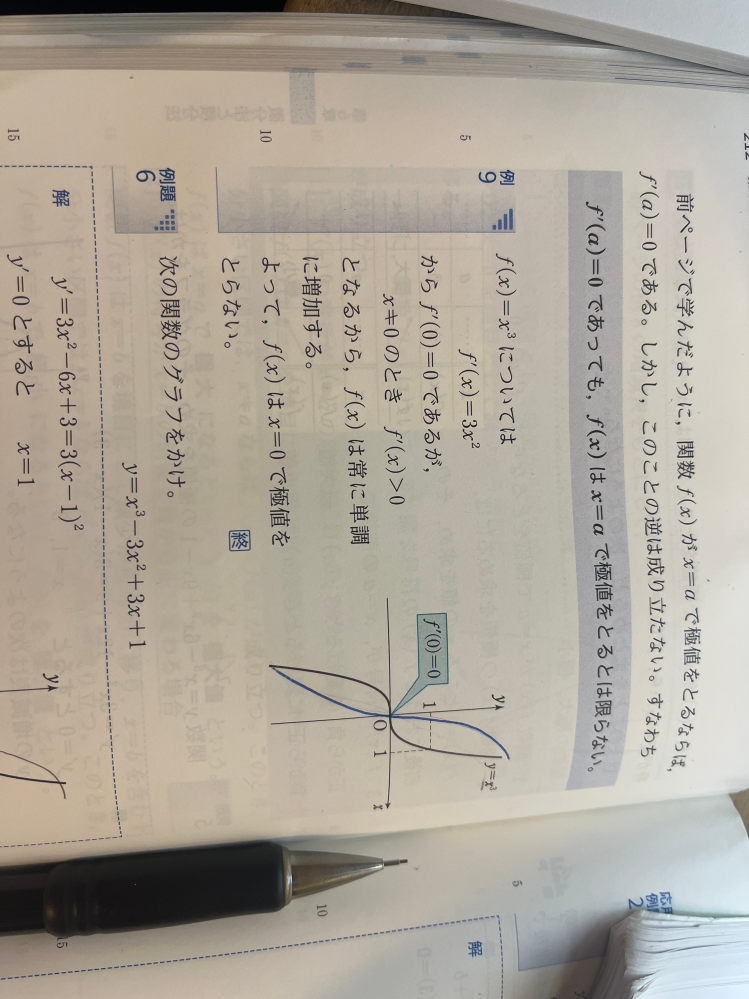 212
前ページで学んだように，関数 f(x) が x=a で極値をとるならば，
f'(a)=0 である。しかし，このことの逆は成り立たない。すなわち
f'(a)=0 であっても，f(x) は x=a で極値をとるとは限らない。
5
例 9
f(x)=x³ については
f'(x)=3x²
から f'(0)=0 であるが，
x≠0 のとき f'(x)>0
となるから，f(x) は常に単調
に増加する。
10
よって，f(x) は x=0 で極値を
とらない。
終
y
y=x³
1
f'(0)=0
O
1
x
例題 6
次の関数のグラフをかけ。
y=x³-3x²+3x+1
解
y'=3x²-6x+3=3(x-1)²
15
y'=0 とすると x=1
y
応用
例題
2
5
解
10
15